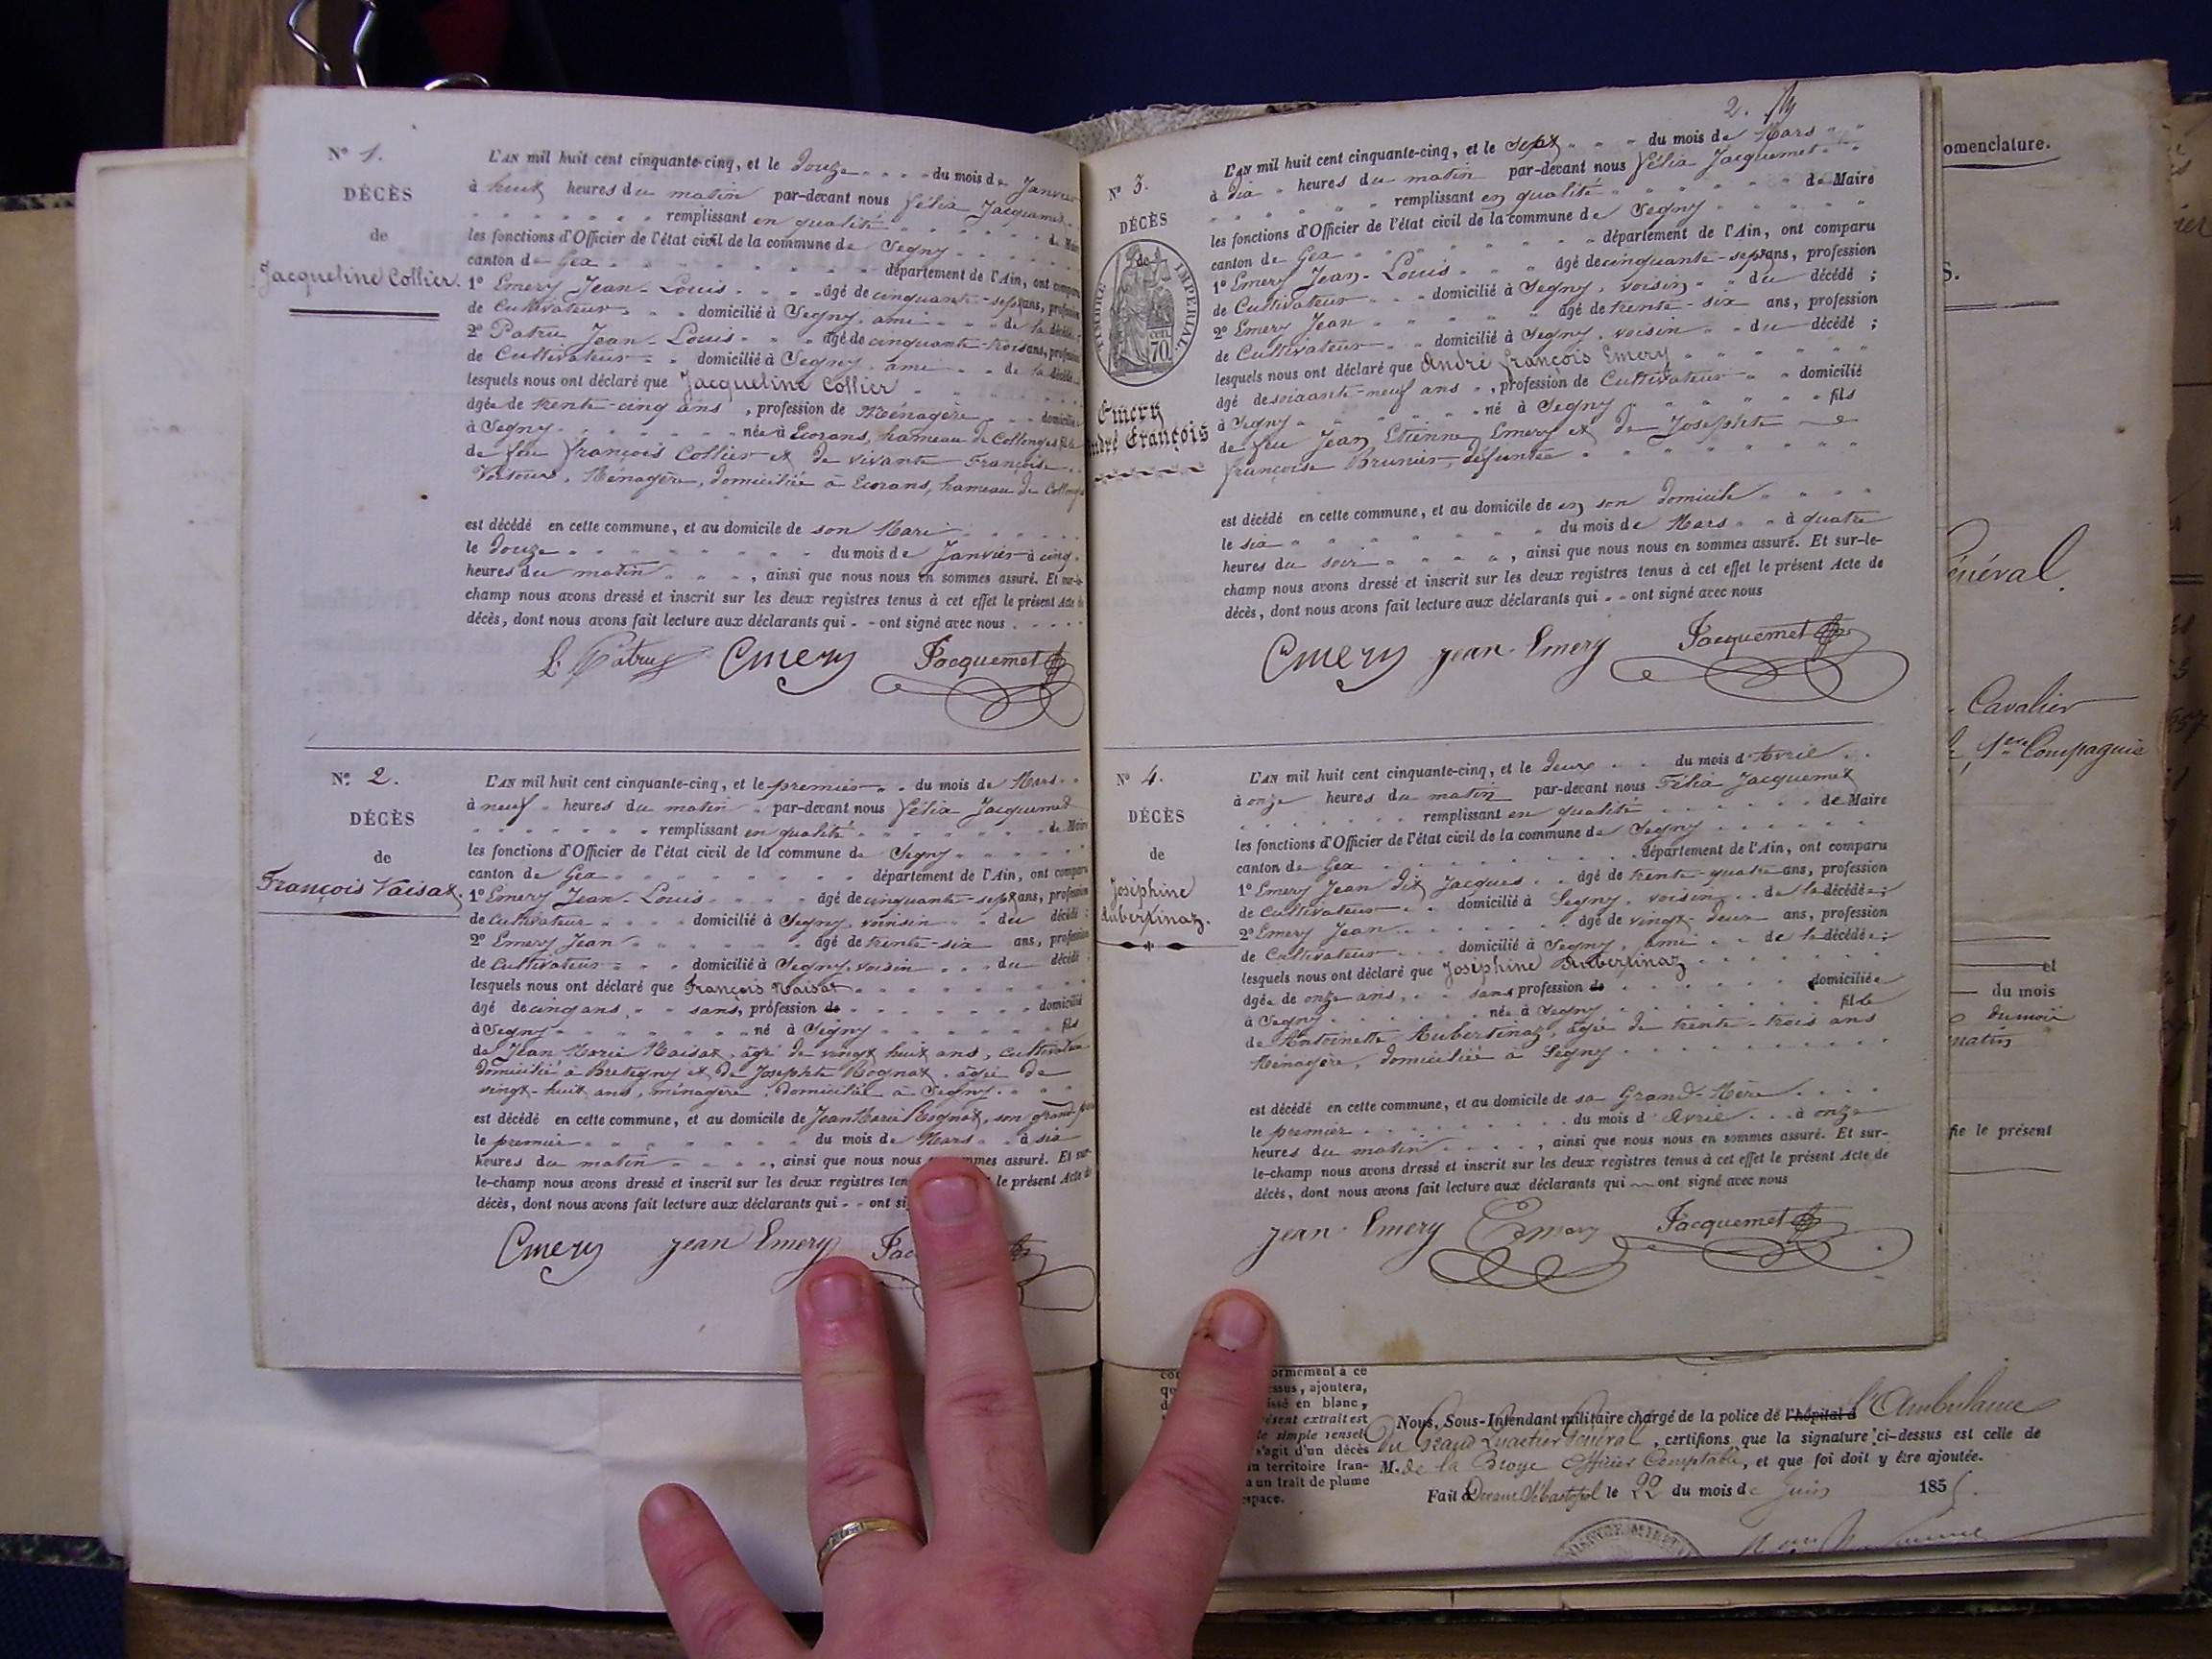 Nº 1.
DÉCÈS
de
Jacqueline Collier.
L'AN mil huit cent cinquante-cinq, et le Douze du mois de Janvier
à huit heures du matin par-devant nous Félix Jacquemet
remplissant en qualité de Maire
les fonctions d'Officier de l'état civil de la commune de Segny
canton de Gex département de l'Ain, ont comparu
1º Emery Jean-Louis âgé de cinquante-sept ans, profession
de Cultivateur domicilié à Segny, ami de la décédée;
2º Patru Jean-Louis âgé de cinquante-trois ans, profession
de Cultivateur domicilié à Segny, ami de la décédée
lesquels nous ont déclaré que Jacqueline Collier
âgée de trente-cinq ans, profession de Ménagère domiciliée
à Segny née à Ecorans, hameau de Collonges fille
de feu François Collier et de vivante Françoise
Ménagère, domiciliée à Ecorans, hameau de Collonges
est décédé en cette commune, et au domicile de son Mari
le Douze du mois de Janvier à cinq
heures du matin, ainsi que nous nous en sommes assuré. Et sur-le-
champ nous avons dressé et inscrit sur les deux registres tenus à cet effet le présent Acte de
décès, dont nous avons fait lecture aux déclarants qui - - ont signé avec nous
L. Patru Emery Jacquemet
Nº 2.
DÉCÈS
de
François Vaisat.
L'AN mil huit cent cinquante-cinq, et le premier du mois de Mars
à neuf heures du matin par-devant nous Félix Jacquemet
remplissant en qualité de Maire
les fonctions d'Officier de l'état civil de la commune de Segny
canton de Gex département de l'Ain, ont comparu
1º Emery Jean-Louis âgé de cinquante-sept ans, profession
de Cultivateur domicilié à Segny, voisin du décédé;
2º Emery Jean âgé de trente-six ans, profession
de Cultivateur domicilié à Segny, voisin du décédé
lesquels nous ont déclaré que François Vaisat
âgé de cinq ans, sans, profession de domicilié
à Segny né à Segny fils
de Jean Marie Vaisat, âgé de vingt huit ans, cultivateur
domicilié à Bretigny et de Josephte Rognat, âgée de
vingt-huit ans, ménagère, domiciliée à Segny.
est décédé en cette commune, et au domicile de Jean Marie Rognat, son grand-père
le premier du mois de Mars à six
heures du matin, ainsi que nous nous sommes assuré. Et sur-
le-champ nous avons dressé et inscrit sur les deux registres le présent Acte de
décès, dont nous avons fait lecture aux déclarants qui - - ont
Emery Jean Emery
2.
Nº 3.
DÉCÈS
de
TIMBRE IMPERIAL
70 cen
Emery
André François
L'AN mil huit cent cinquante-cinq, et le Sept du mois de Mars
à dix heures du matin par-devant nous Félix Jacquemet
remplissant en qualité de Maire
les fonctions d'Officier de l'état civil de la commune de Segny
canton de Gex département de l'Ain, ont comparu
1º Emery Jean-Louis âgé de cinquante-sept ans, profession
de Cultivateur domicilié à Segny, voisin du décédé;
2º Emery Jean âgé de trente-six ans, profession
de Cultivateur domicilié à Segny, voisin du décédé;
lesquels nous ont déclaré que André François Emery
âgé de soixante-neuf ans, profession de Cultivateur domicilié
à Segny né à Segny fils
de feu Jean Etienne Emery et de Josephte
Françoise Brunier, défuntée
est décédé en cette commune, et au domicile de en son domicile
le six du mois de Mars à quatre
heures du soir, ainsi que nous nous en sommes assuré. Et sur-le-
champ nous avons dressé et inscrit sur les deux registres tenus à cet effet le présent Acte de
décès, dont nous avons fait lecture aux déclarants qui - - ont signé avec nous
Emery Jean Emery Jacquemet
Nº 4.
DÉCÈS
de
Joséphine
Aubertinaz.
L'AN mil huit cent cinquante-cinq, et le Deux du mois d'Avril
à onze heures du matin par-devant nous Félix Jacquemet
remplissant en qualité de Maire
les fonctions d'Officier de l'état civil de la commune de Segny
canton de Gex département de l'Ain, ont comparu
1º Emery Jean dit Jacques âgé de trente-quatre ans, profession
de Cultivateur domicilié à Segny, voisin de la décédée;
2º Emery Jean âgé de vingt-deux ans, profession
de Cultivateur domicilié à Segny, ami de la décédée;
lesquels nous ont déclaré que Joséphine Aubertinaz
âgée de onze ans, sans profession de domiciliée
à Segny née à Segny fille
de Antoinette Aubertinaz, âgée de trente-trois ans
Ménagère, domiciliée à Segny
est décédé en cette commune, et au domicile de sa Grand-Mère
le premier du mois d'Avril à onze
heures du matin, ainsi que nous nous en sommes assuré. Et sur-
le-champ nous avons dressé et inscrit sur les deux registres tenus à cet effet le présent Acte de
décès, dont nous avons fait lecture aux déclarants qui ont signé avec nous
Jean Emery Emery Jacquemet
omenclature.
S.
énéral
Cavalier
1ere Compagnie
et
du mois
matin
fie le présent
ormément à ce
ssus, ajoutera,
issé en blanc,
ésent extrait est
le simple rensei-
s'agit d'un décès
territoire fran-
a un trait de plume
espace.
Nous, Sous-Intendant militaire chargé de la police de l'hôpital d l'Ambulance
du Grand Quartier Général, certifions que la signature ci-dessus est celle de
M. de la Broye Officier Comptable, et que foi doit y être ajoutée.
Fait à Devant Sébastopol le 22 du mois de Juin 1855.